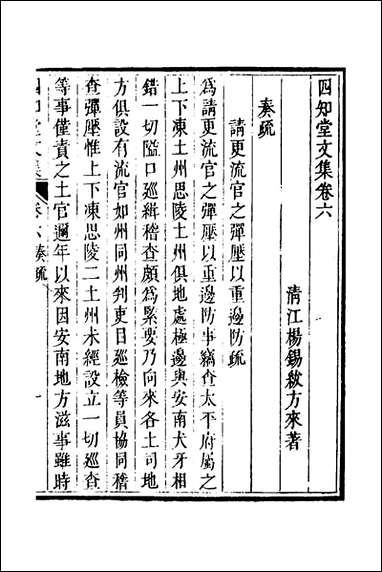 四知堂文集卷六
清江楊錫紱方來著
奏疏
請更流官之彈壓以重邊防疏
爲請更流官之彈壓以重邊防事竊查太平府屬之
上下凍土州思陵土州俱地處極邊與安南犬牙相
錯一切隘口巡緝稽查頗爲緊要乃向來各土司地
方俱設有流官如州同州判吏目巡檢等員協同稽
查彈壓惟上下凍思陵二土州未經設立一切巡查
等事僅責之土官邇年以來因安南地方滋事雖時
四知堂文集
卷六奏疏